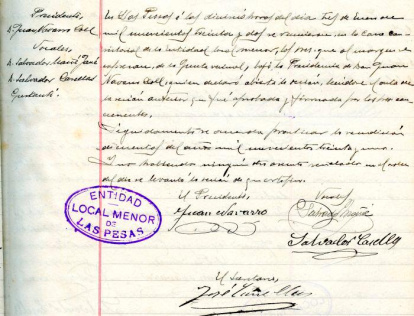 Presidente,
D. Juan Navarro Coll
Vocales,
D. Salvador Mañé Pané
D. Salvador Casellas
En Las Pesas á las diecinueve horas del día tres de
mil novecientos treinta y dos se reunieron en la Casa
de la entidad local menor, los que al margen se
expresan, de la Junta vecinal, bajo la Presidencia de Don Juan
Navarro Coll, quien declaró abierta la sesión, leída el acta de
la sesión anterior que fué aprobada y firmada por los con-
currentes.
Seguidamente se acuerda practicar la rendición
de cuentas del año mil novecientos treinta y uno.
Y no habiendo ningún otro asunto señalado en el orden
del día se levantó la sesión de que certifico.
El Presidente,
Vocales
Juan Navarro
Salvador Mañé
Salvador Casellas
ENTIDAD
LOCAL MENOR
DE
LAS PESAS
El Secretario,
José